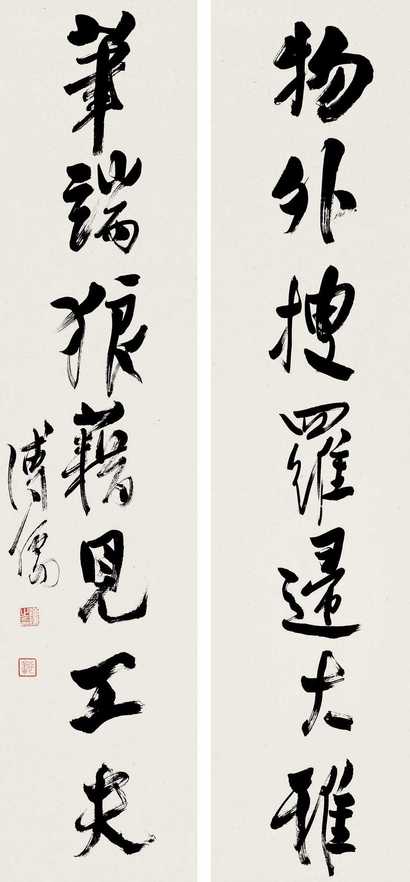 物外搜羅歸大雅
筆端狼藉見工夫
溥儒